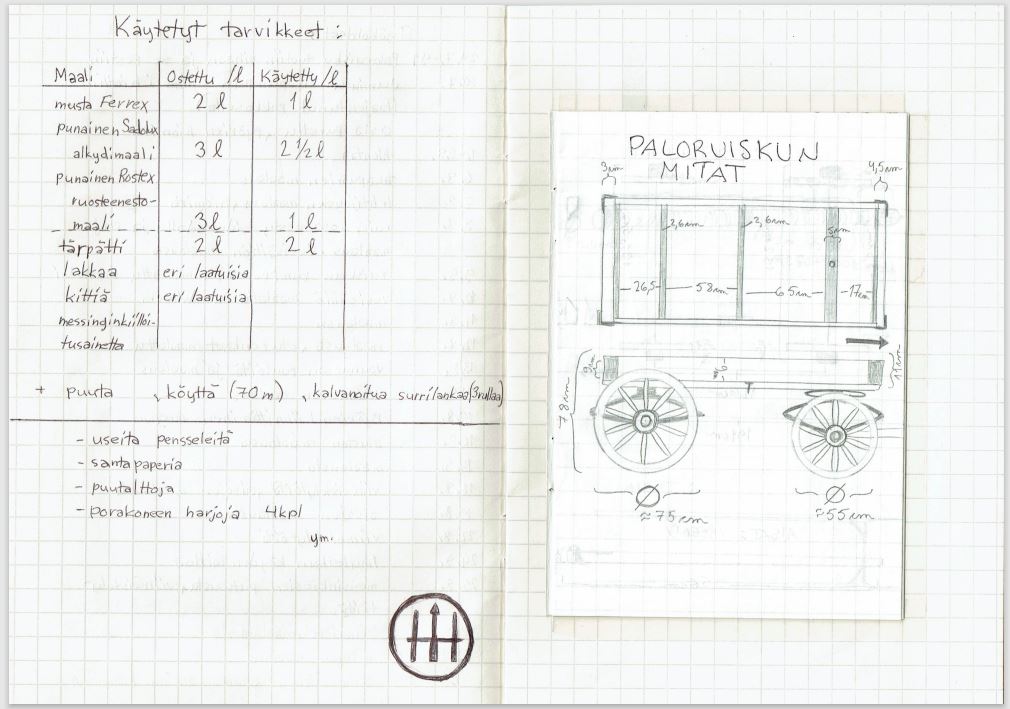 Käytetyt tarvikkeet :
Maali Ostettu /l Käytetty /l
musta Ferrex 2 l 1 l
punainen Sadolux
alkydimaali 3 l 2 ½ l
punainen Rostex
ruosteenesto-
maali 3 l 1 l
tärpätti 2 l 2 l
lakkaa eri laatuisia
kittiä eri laatuisia
messinginkiilloi-
tusainetta
+ puuta , köyttä (70 m) , kalvanoitua surrilankaa (3 rullaa)
- useita pensseleitä
- santapaperia
- puutalttoja
- porakoneen harjoja 4kpl
ym.
PALORUISKUN
MITAT
3cm 4,5cm
2,6cm 2,6cm
5cm
26,5 58cm 65cm 17cm
78cm 9cm 11cm
Ø Ø
≈75cm ≈55cm